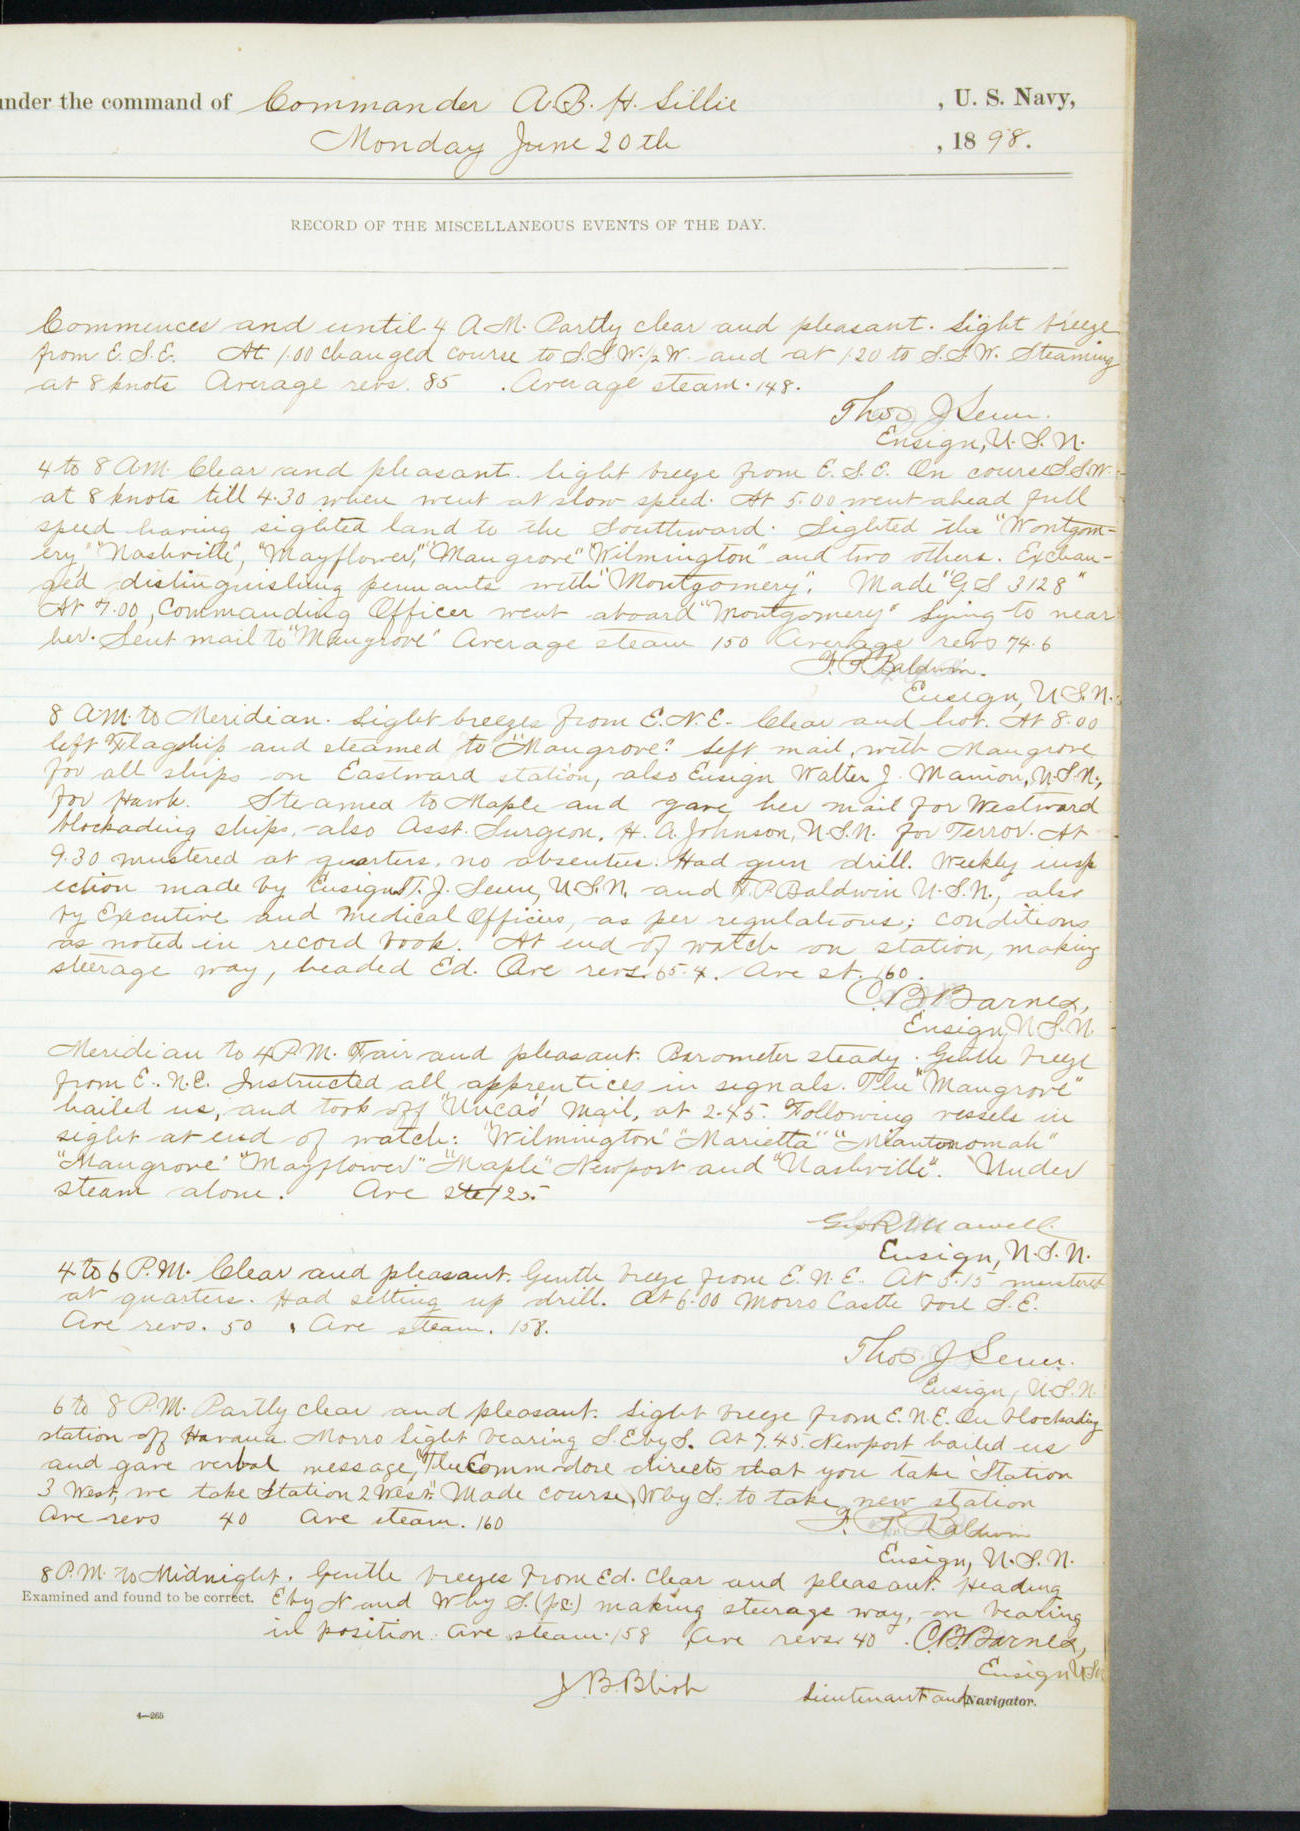 under the command of Commander A. B. H. Lillie , U. S. Navy,
Monday June 20th , 1898.
RECORD OF THE MISCELLANEOUS EVENTS OF THE DAY.
Commences and until 4 A.M. Partly clear and pleasant. Light breeze
from E.S.E. At 1.00 changed course to S.S.W.1/2 W. and at 1.20 to S.S.W. Steaming
at 8 knots Average revs. 85 . Average steam. 148.
Thos J Senn.
Ensign, U.S.N.
4 to 8 A.M. Clear and pleasant. light breeze from E.S.E. On course S.S.W.
at 8 knots till 4.30 when went at slow speed. At 5.00 went ahead full
speed having sighted land to the Southward. Sighted the "Montgom-
ery," "Nashville", "Mayflower," "Mangrove" "Wilmington" and two others. Exchan-
ged distinguishing pennants with "Montgomery". Made "G S 3128"
At 7.00, Commanding Officer went aboard "Montgomery" Lying to near
her. Sent mail to "Mangrove" Average steam 150 Average revs 74.6
F. P. Baldwin.
Ensign, U.S.N.
8 A.M. to Meridian. Light breezes from E.N.E. Clear and hot. At 8.00
left Flagship and steamed to "Mangrove". Left mail, with Mangrove
for all ships on Eastward station, also Ensign Walter J. Manion, U.S.N.,
for Hawk. Steamed to Maple and gave her mail for Westward
blockading ships, also Asst. Surgeon, H. A. Johnson, U.S.N. for Terror. At
9.30 mustered at quarters, no absentees. Had gun drill. Weekly insp
ection made by Ensigns T. J. Senn, U.S.N. and F. P. Baldwin U.S.N., also
by Executive and Medical Officers, as per regulations; conditions
as noted in record book. At end of watch on station, making
steerage way, headed E'd. Ave revs. 65.4. Ave st. 160.
C. B. Barnes,
Ensign, U.S.N.
Meridian to 4 P.M. Fair and pleasant. Barometer steady. Gentle breeze
from E.N.E. Instructed all apprentices in signals. The "Mangrove"
hailed us, and took off "Uncas'" mail, at 2.45. Following vessels in
sight at end of watch: "Wilmington" "Marietta" "Miantonomah"
"Mangrove" "Mayflower" "Maple" Newport and "Nashville". Under
steam alone. Ave ste 125
Ensign, U.S.N.
4 to 6 P.M. Clear and pleasant. Gentle breeze from E.N.E. At 5.15 mustered
at quarters. Had setting up drill. At 6.00 Morro Castle bore S.E.
Ave revs. 50 , Ave steam. 158.
Thos J Senn.
Ensign, U.S.N.
6 to 8 P.M. Partly clear and pleasant. Light breeze from E.N.E. On blockading
station off Havana. Morro Light bearing S.E by S. At 7.45. Newport hailed us
and gave verbal message, "The Commodore directs that you take Station
3 West, we take Station 2 West." Made course, W by S. to take new station
Ave revs 40 Ave steam. 160 F. P. Baldwin
Ensign, U.S.N.
8 P.M. to Midnight. Gentle breezes from E'd. Clear and pleasant. Heading
Examined and found to be correct. E by N and W by S. (p.c.) making steerage way, on bearing
in position. Ave steam. 158 Ave revs. 40 . C. B. Barnes,
Ensign U.S.N
J. B. Blish Lieutenant and Navigator.
4—265